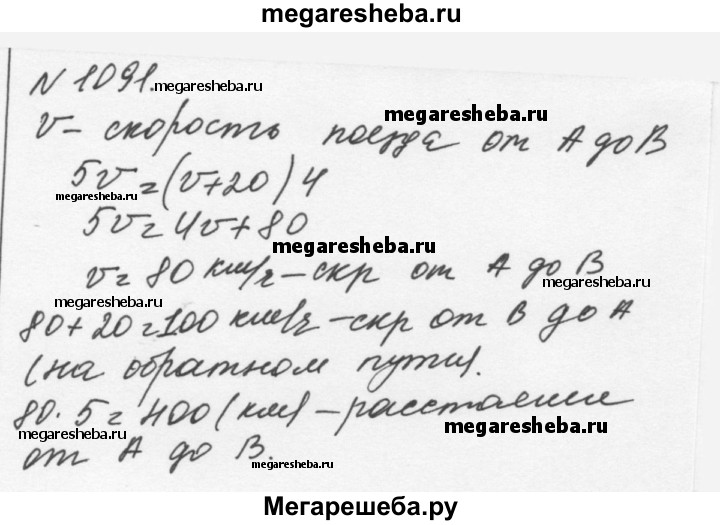 megaresheba.ru
N 1091. megaresheba.ru
megaresheba.ru
v – скорость поезда от А до В
5v = (v+20) 4
megaresheba.ru
5v = 4v + 80
megaresheba.ru
v = 80 км/ч – скр от А до В
megaresheba.ru
megaresheba.ru
80 + 20 = 100 км/ч – скр от В до А
(на обратном пути).
80 · 5 = 400 (км) – расстояние
megaresheba.ru
megaresheba.ru
от А до В.
megaresheba.ru
Мегарешеба.ру